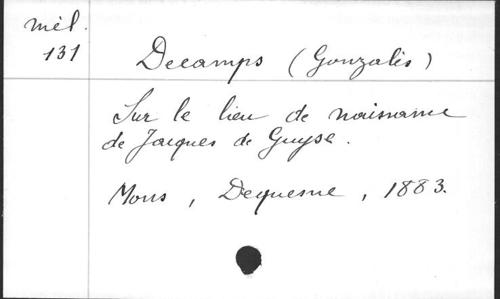 mél.
131
Decamps (Gonzalès)
Sur le lieu de naissance
de Jacques de Guyse.
Mons, Dequesne, 1883.